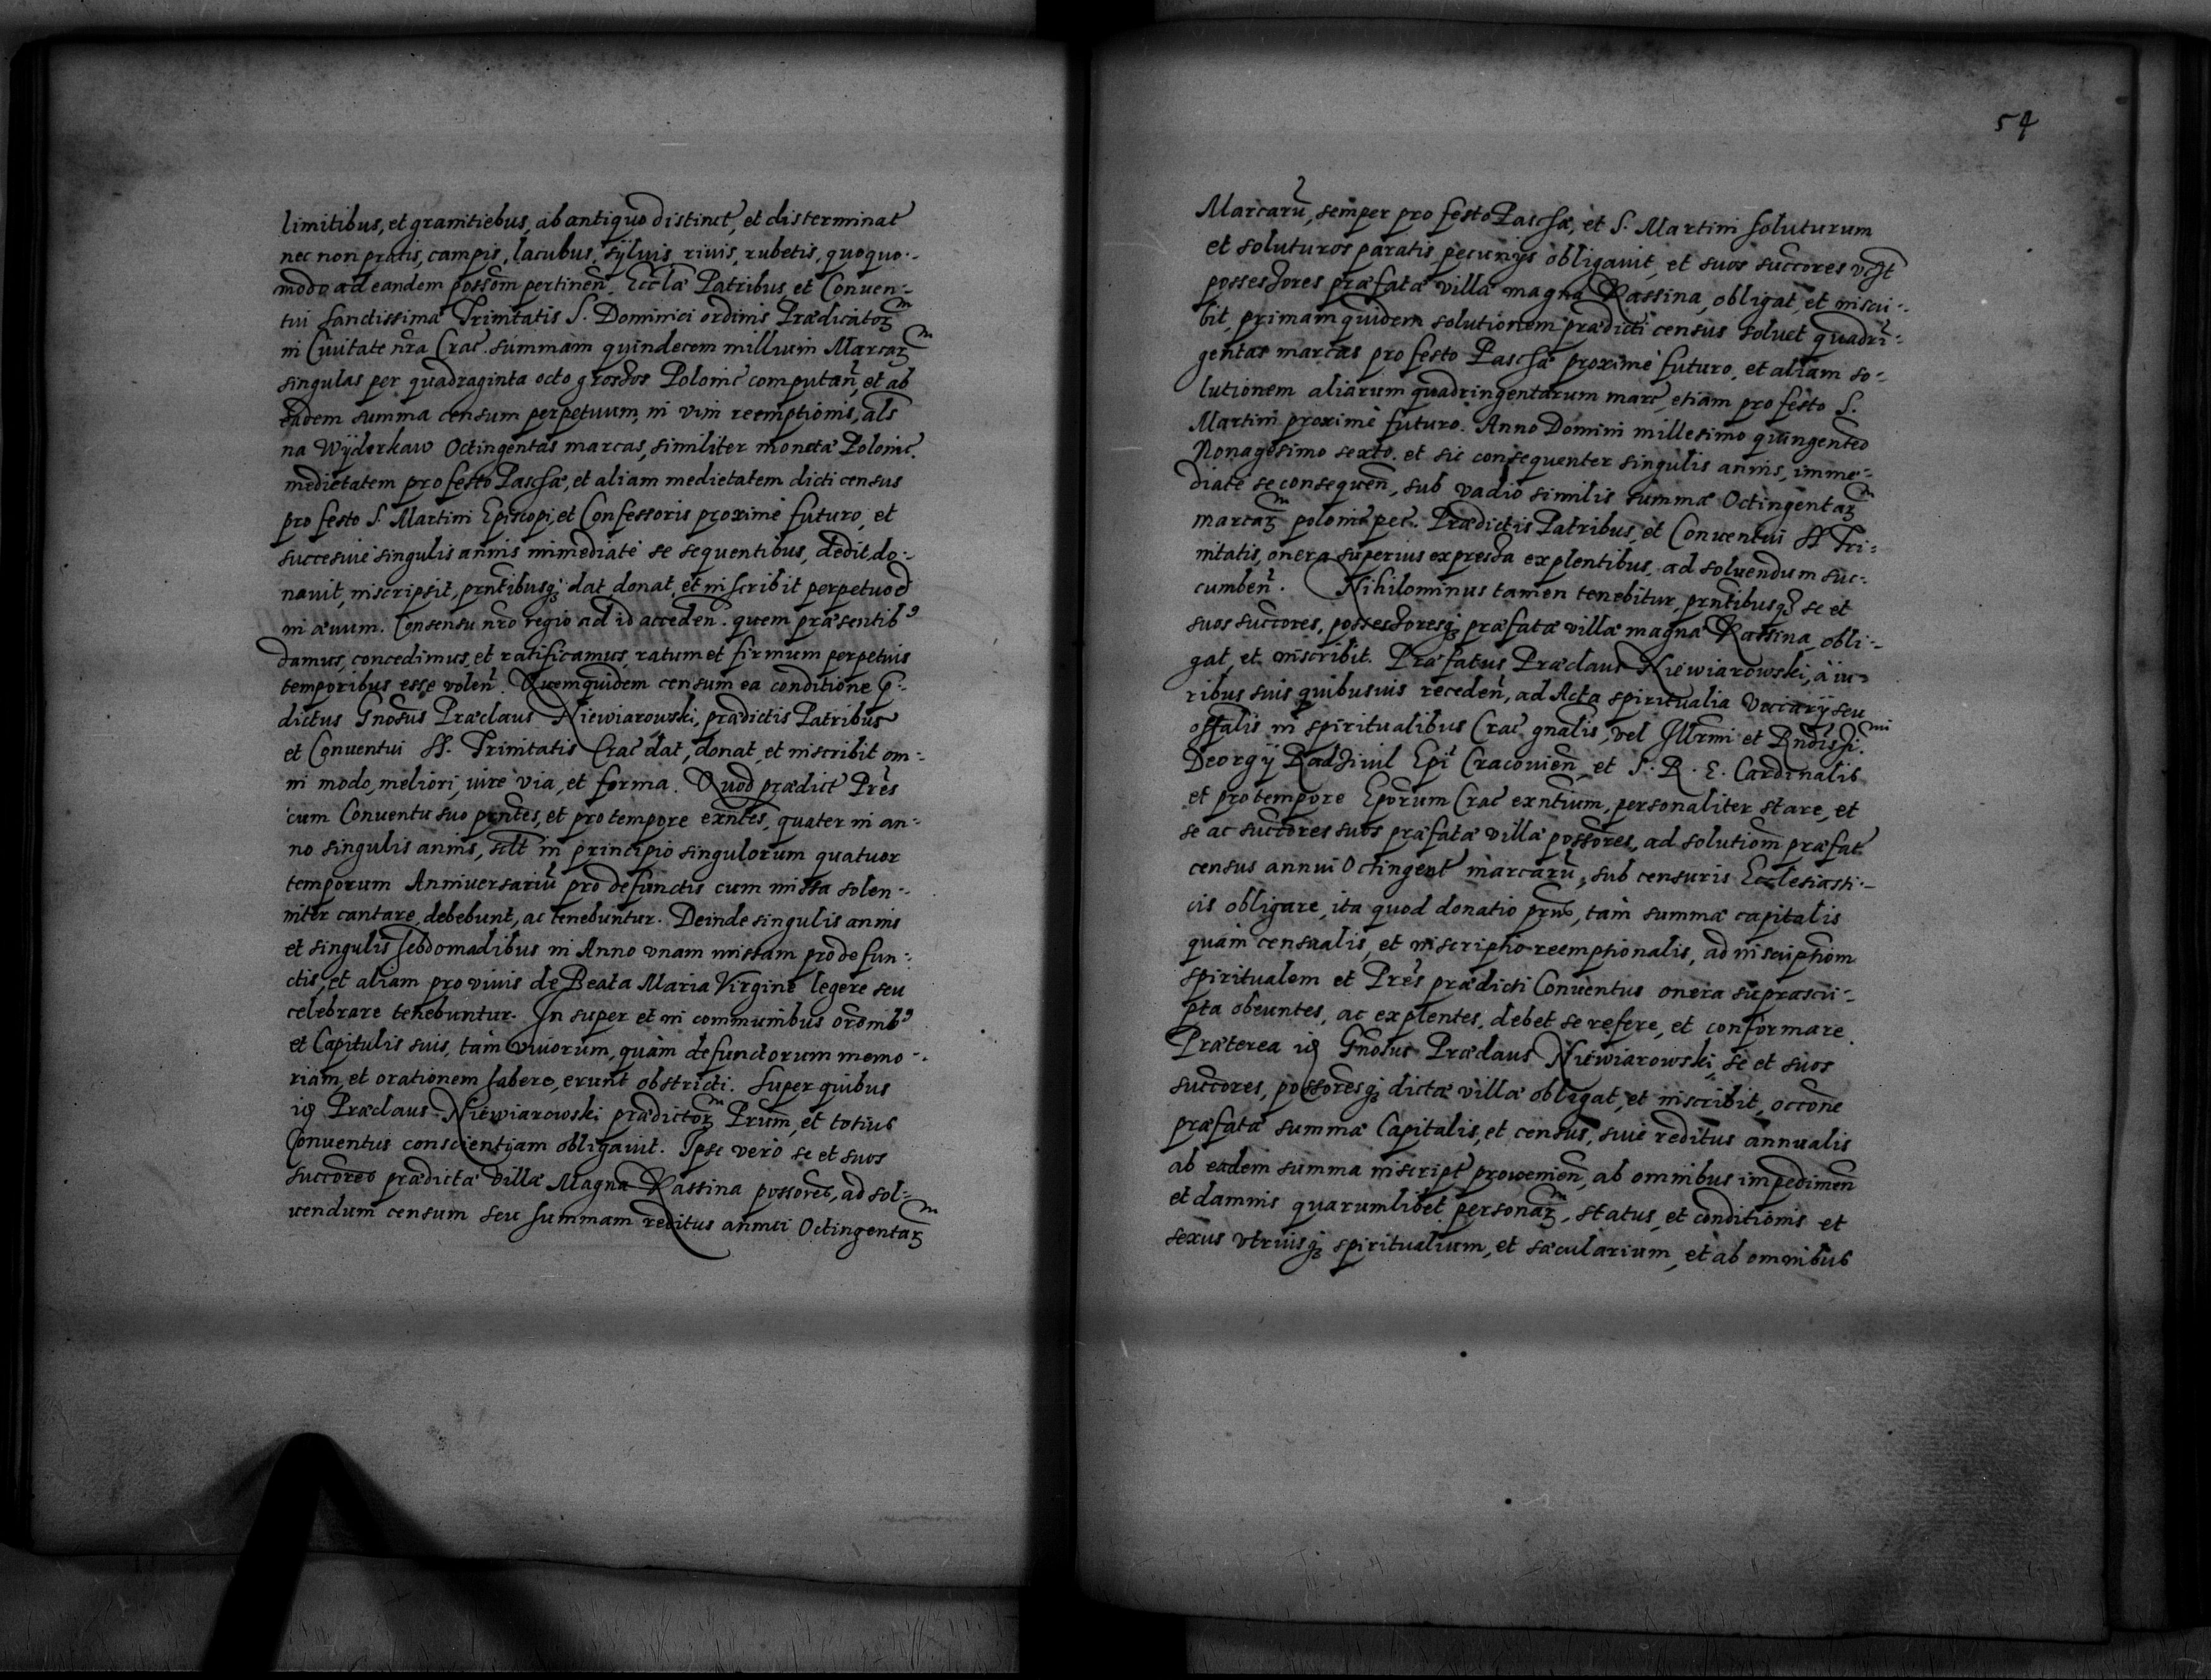 limitibus, et granitiebus, ab antiquo distinct, et disterminat
nec non pratis, campis, lacubus, syluis riuis, rubetis, quoquo-
modo ad eandem possom pertinen. Eccla Patribus et Conuen-
tui Sanctissimæ Trinitatis S. Dominici ordinis Prædicatorm
in Ciuitate nra Crac. summam quindecem millium Marcarm
singulas per quadraginta octo grossos Polonic computan, et ab
eadem summa censum perpetuum, in vim reemptionis, als
na Wyderkaw Octingentas marcas, similiter monetæ Polonic.
medietatem pro festo Paschæ, et aliam medietatem dicti census
pro festo S. Martini Episcopi, et Confessoris proxime futuro, et
successiuè singulis annis immediatè se sequentibus, dedit, do-
nauit, inscripsit, prntibusq; dat donat, et inscribit perpetuo et
in æuum. Consensu nro regio ad id acceden. quem præsentib9
damus, concedimus, et ratificamus, ratum et firmum perpetuis
temporibus esse volen. Quemquidem censum ea conditione p-
dictus Gnosus Præclaus Niewiarowski, prædictis Patribus
et Conuentui SS. Trinitatis Crac dat, donat, et inscribit om-
ni modo, meliori, iure via, et forma. Quod prædict Pres
cum Conuentu suo prntes, et pro tempore exntes, quater in an-
no singulis annis, sclt in principio singulorum quatuor
temporum Anniuersariu pro defunctis cum missa solen-
niter cantare, debebunt, ac tenebuntur. Deinde singulis annis
et singulis hebdomadibus in Anno vnam missam pro defun-
ctis, et aliam pro viuis de Beata Maria Virgine legere seu
celebrare tenebuntur. In super et in communibus oronib9
et Capitulis suis, tam viuorum, quàm defunctorum memo-
riam, et orationem habere, erunt obstricti. Super quibus
id Præclaus Niewiarowski prædictorm Prum, et totius
Conuentus conscientiam obligauit. Ipse verò se et suos
succores prædictæ villæ Magna Rassina possores, ad sol-
uendum censum seu summam reditus annui Octingentarm
54
Marcaru, semper pro festo Paschæ, et S. Martini soluturum
et soluturos paratis pecunys obligauit, et suos succores vcst
possessores præfatæ villæ magna Rassina, obligat, et inscri-
bit, primam quidem solutionem prædicti census soluet quadri-
gentas marcas pro festo Paschæ proximè futuro, et aliam so-
lutionem aliarum quadringentarum marc, etiam pro festo S.
Martini proximè futuro. Anno Domini millesimo quingenteo
Nonagesimo sexto. et sic consequenter singulis annis, imme-
diatè se consequen, sub vadio similis summæ Octingentarm
marcarm polonic pec. Prædictis Patribus, et Conuentui SS Tri-
nitatis, onera superius expressa explentibus, ad soluendum suc-
cumben. Nihilominus tamen tenebitur, prntibusq; se et
suos succores, possessoresq; præfatæ villæ magnæ Rassina, obli-
gat, et inscribit. Præfatus Præclaus Niewiarowski, à iu-
ribus suis quibusuis receden, ad Acta spiritualia Vicarij seu
offalis in spiritualibus Crac gnalis, vel Illrmi et Rndissimi.
Georgij Radziuil Epi Cracouien, et S. R. E. Cardinalis
et pro tempore Eporum Crac exntium, personaliter stare, et
se ac succores suos præfatæ villæ possores, ad solutiom præfat
census annui Octingent marcaru, sub censuris Ecclesiasti-
cis obligare, ita quod donatio prns, tam summæ capitalis
quàm censualis, et inscriptio reemptionalis, ad inscriptiom
spiritualem et Pres prædicti Conuentus onera suprascri-
pta obeuntes, ac explentes, debet se refere, et conformare.
Præterea id Gnosus Præclaus Niewiarowski, se et suos
succores, possoresq; dictæ villæ obligat, et inscribit, occone
præfatæ summæ Capitalis, et census, siue reditus annualis
ab eadem summa inscript prouenien, ab omnibus impedimen
et damnis quarumlibet personarm, status, et conditionis et
sexus vtriusq; spiritualium, et sæcularium, et ab omnibus